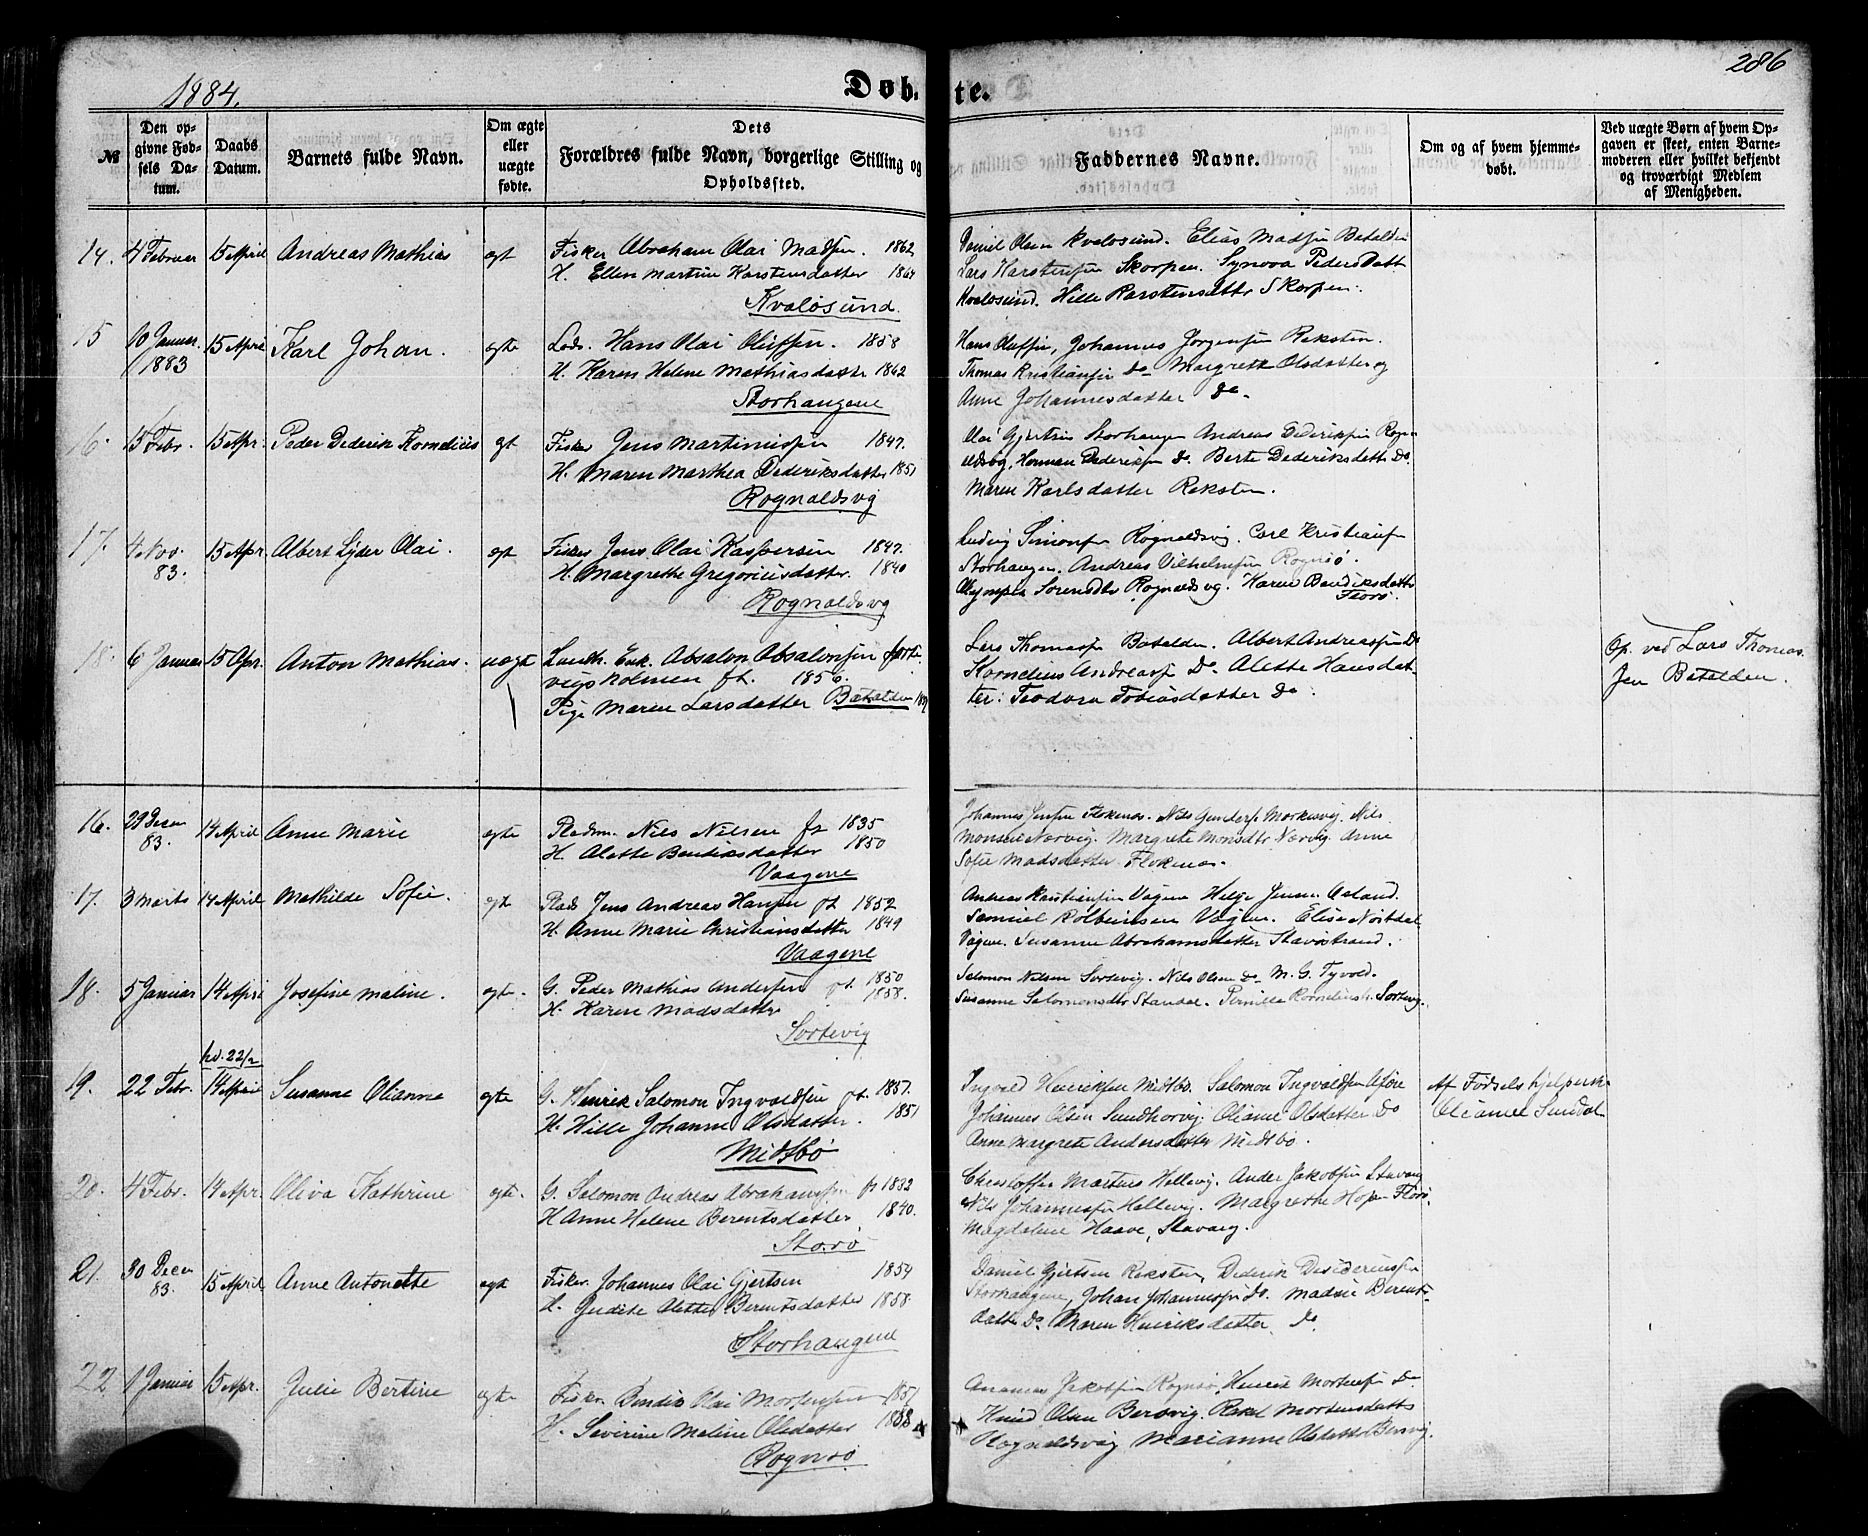 1884.
Døb.
te.
286
№
Den op-
givne Fød-
sels Da-
tum.
Daabs
Datum.
Barnets fulde Navn.
Om ægte
eller
uægte
fødte.
Dets
Forældres fulde Navn, borgerlige Stilling og
Opholdssted.
Faddernes Navne.
Om og af hvem hjemme-
døbt.
Ved uægte Børn af hvem Op-
gaven er skeet, enten Barne-
moderen eller hvilket bekjendt
og troværdigt Medlem
af Menigheden.
14. 4 Februar 15 April Andreas Mathias egt Fisker Abraham Olai Madsen. 1862
H. Ellen Martine Karstensdatter 1864
Kvalosund.
Daniel Olsen Kvalosund. Elias Madsen Batalden
Lars Karstensen Skorpen. Synova Pedersdatt
Kvalosund. Hille Karstensdatter Skorpen.
15 10 Januar. 1883 15 April Karl Johan. egte Lods. Hans Olai Olufsen. 1858
H. Karen Helene Mathiasdatter 1862
Storhaugene
Hans Olufsen, Johannes Jørgensen Reksten.
Thomas Kristiansen Do Margrete Olsdatter og
Anne Johannesdatter Do.
16. 15 Febr. 15 Apr. Peder Dederik Kornelius egt Fisker Jens Martinussen 1847.
H. Maren Marthea Dederiksdatter 1851
Rognaldsvg
Olai Gjertsen Storhaugen Andreas Dederiksen Rogn-
aldsvg, Herman Dederiksen Do. Berte Dederiksdatter Do.
Maren Karlsdatter Reksten.
17. 4 Nov. 83. 15 Apr. Albert Lyder Olai. egt Fisker Jens Olai Kaspersen 1847.
H. Margrethe Gregoriusdatter. 1840
Rognaldsvg
Ludvig Simonsen Rognaldsvg. Carl Kristiansen
Storhaugen. Andreas Vilhelmsen Rognsø.
Olympia Sorensdtr Rognaldsvg. Karen Bendiksdatter
Florø.
18. 6 Januar 15 Apr. Anton Mathias. uegt Enk. Absalon Absalonsen
holmen ft. 1856.
Pige Maren Larsdatter Batalden
Lars Thomasen Batalden. Albert Andreassen Do
Kornelius Andreasen Do. Alette Hansdat-
ter. Teodora Tobiasdatter Do.
Op. ved Lars Thomas-
sen Batalden.
16. 29 Decem 83. 14 April Anne Marie egte Pladsm. Nils Nilsen ft 1835
H. Alette Bendiksdatter 1850
Vaagene
Johannes Jensen Flokenes. Nils Gundersen Morkevig. Nils
Monsen Nærvig. Margrete Monsdtr Nærvig. Anne
Sofie Madsdatter Flokenes.
17. 3 Marts 14 April Mathilde Sofie. egt Plads Jens Andreas Hansen ft 1852
H. Anne Marie Christiansdatter 1849
Vaagene
Andreas Kristiansen Vagene Helge Jensen Aaland.
Samuel Kolbeinsen Vagen. Elise Nordal
Vagene. Susanne Abrahamsdatter Stavøstrand.
18. 5 Januar 14 April Josefine Maline. egte. G. Peder Mathias Andersen ft. 1850
1858.
H. Karen Madsdatter
Sortevig
Salomon Nilsen Sortevig. Nils Olsen Do. M. G. Tyvold.
Susanne Salomonsdtr Standal. Pernille Korneliusdr. Sortevig.
hd. 22/2
19. 22 Febr. 14 April Susanne Olianna egte G. Henrik Salomon Ingvaldsen ft. 1857.
H. Hille Johanne Olsdatter. 1851
Midtbø
Ingvald Henriksen Midtbø. Salomon Ingvaldsen
Johannes Olsen Olianne Olsdatter Do
Anne Margrete Andersdatter Midtbø.
Af Fødselshjelpersk.
Olianne Sundal
20. 4 Febr. 14 Apr. Oliva Kathrine egte. G. Salomon Andreas Abrahamsen ft 1832
H Anne Helene Berentsdatter 1840.
Storø
Christoffer Martins Hellevig. Ander Jakobsen Stavang
Nils Johannessen Hellevig. Margrethe Hope Florø.
Magdalene Haave, Stavang.
21. 30 Decem 83. 15 April Anne Antonette egt Fisker Johannes Olai Gjertsen 1854
H. Gudite Alette Berentsdatter 1858.
Storhaugene
Daniel Gjertsen Reksten, Dederik Desideriussen
Storhaugene, Johan Johannessen do. Madsie Berents-
datter Do Maren Henriksdatter. Do
22 1 Januar 15 Apr. Julie Bertine egte Fisker Bendix Olai Mortensen 1857
H. Severine Maline Olsdatter 1858
Rognsø
Jakobsen Rognsø, Henrik Mortensen Do
Knud Olsen Berøvig. Rakel Mortensdatter
Rognaldsvg Marianne Olsdatter Berøvig.